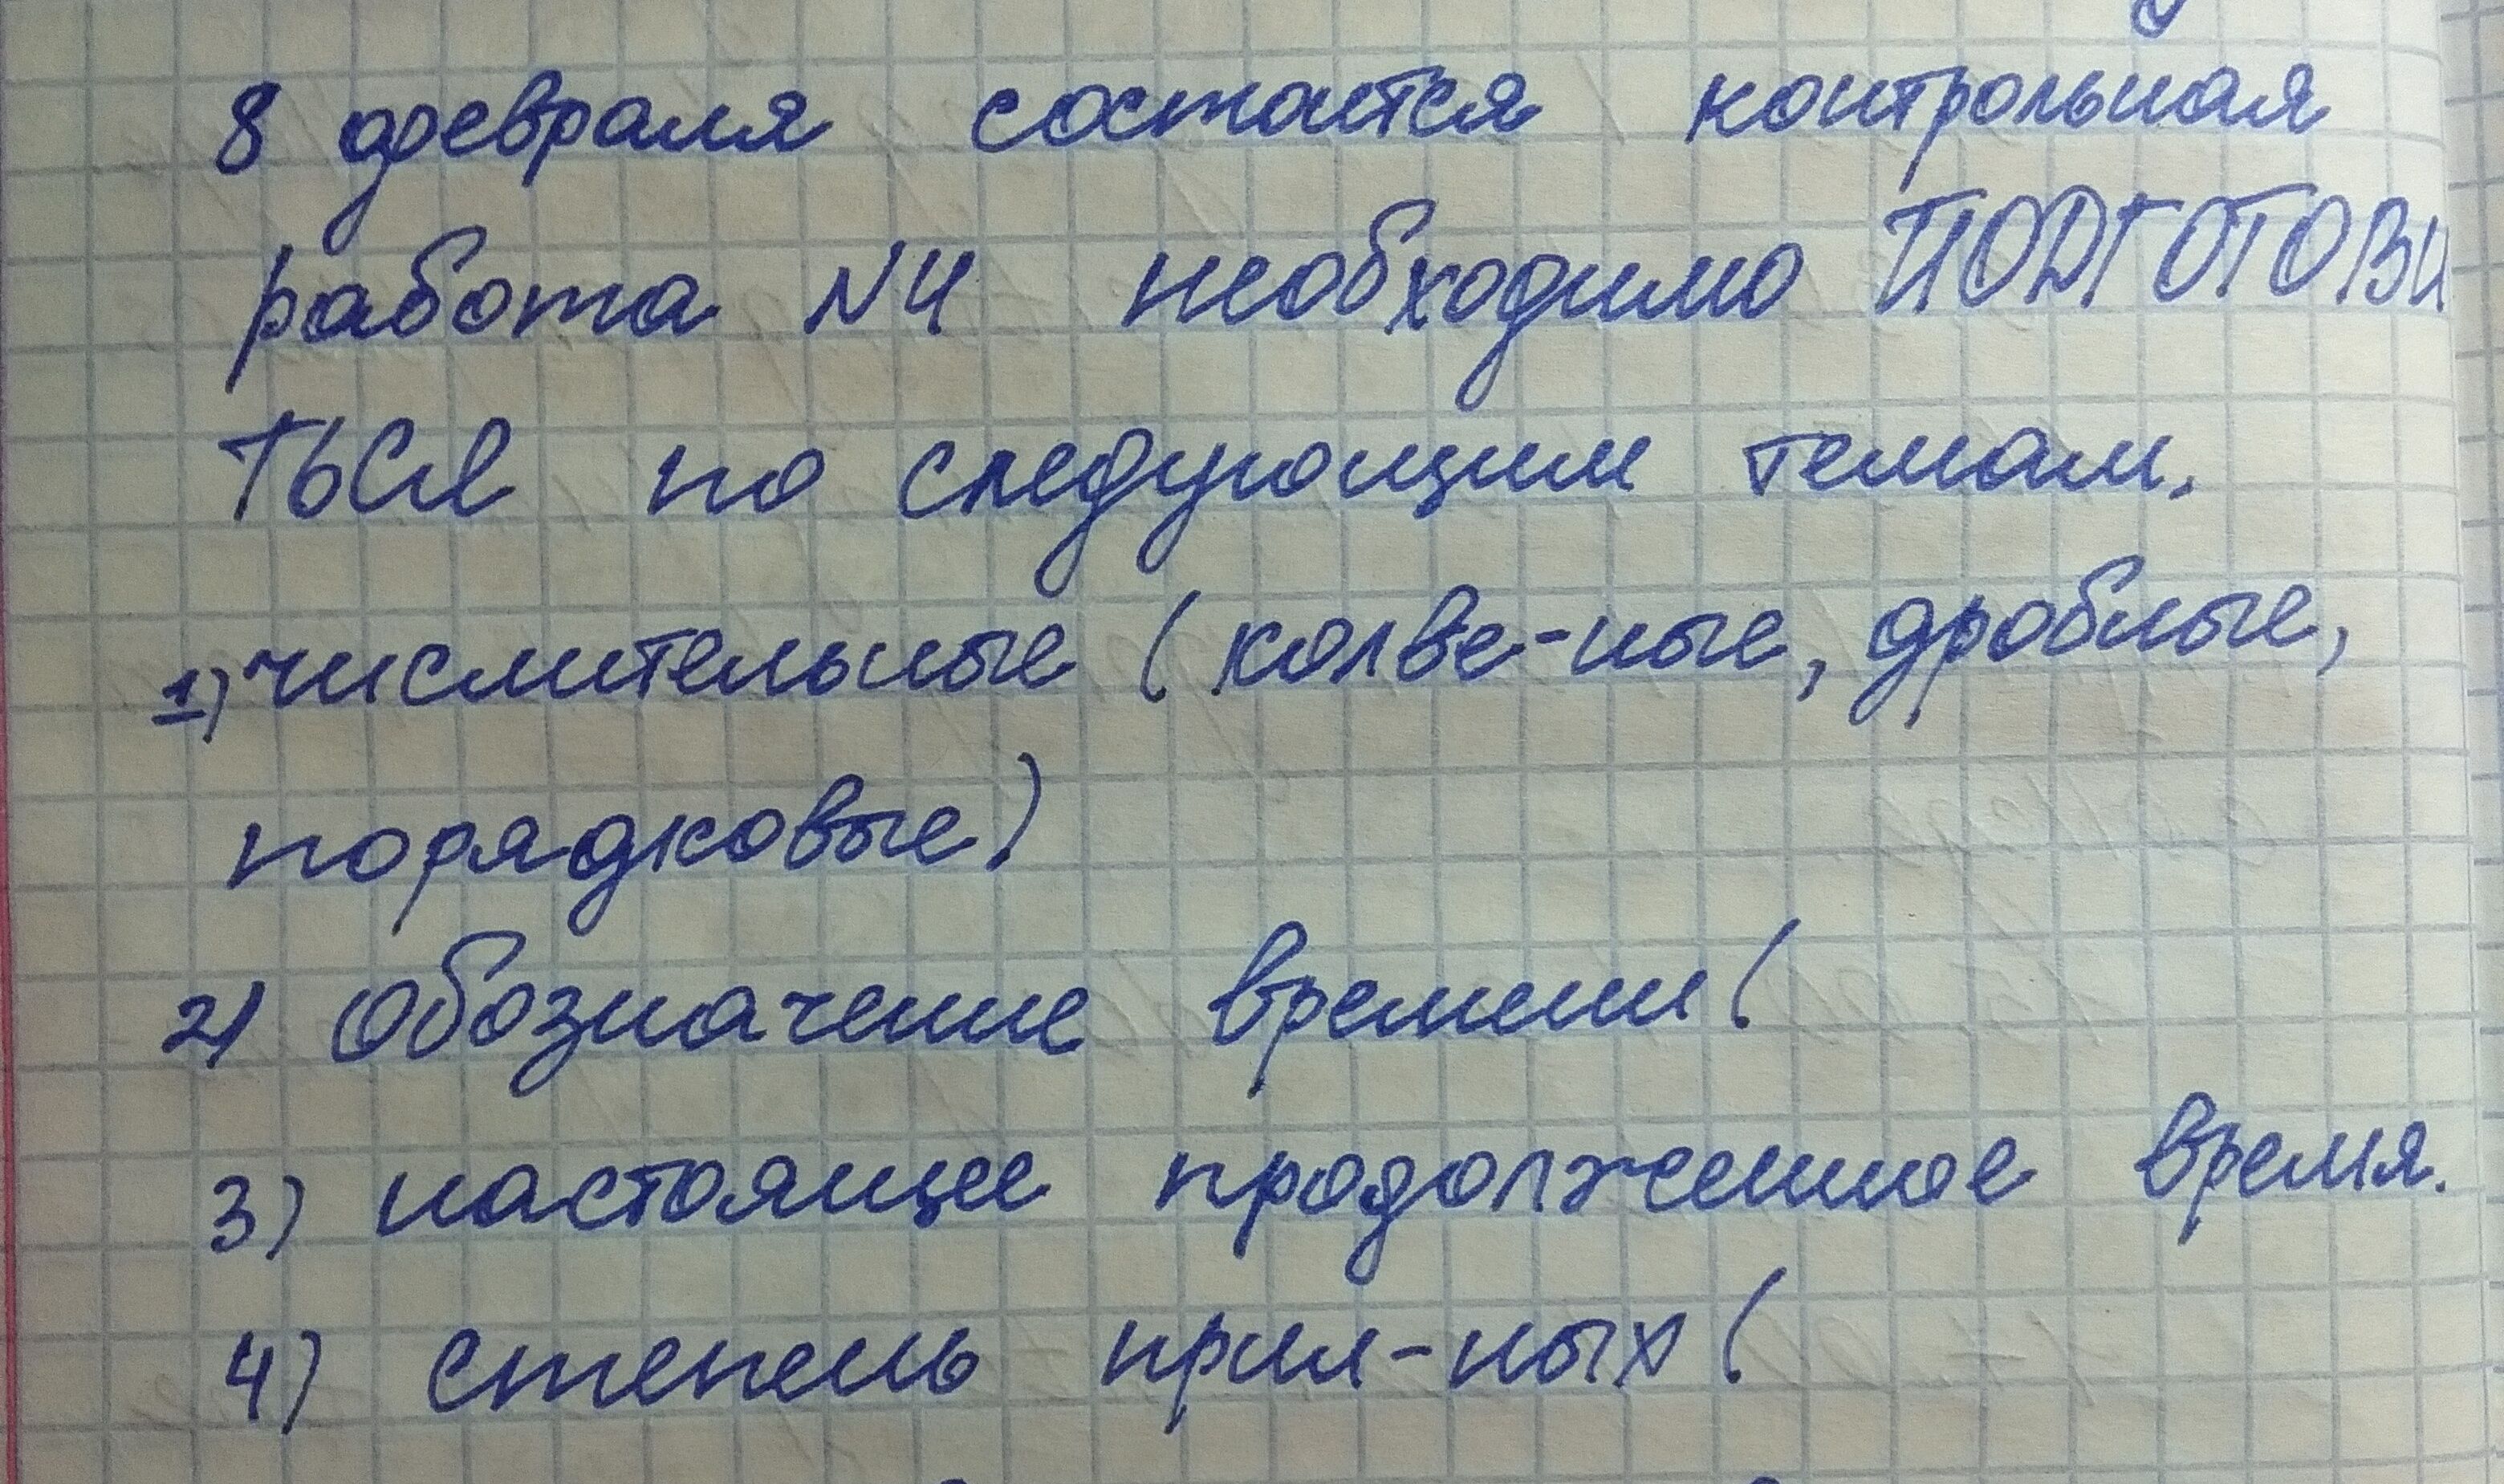 8 февраля состоится контрольная
работа N4 необходимо ПОДГОТОВИ
ТЬСЯ по следующим темам.
1) числительные (колве-ные, дробные,
порядковые)
2) Обозначение времени (
3) настоящее продолженное время.
4) степень прил-ных (